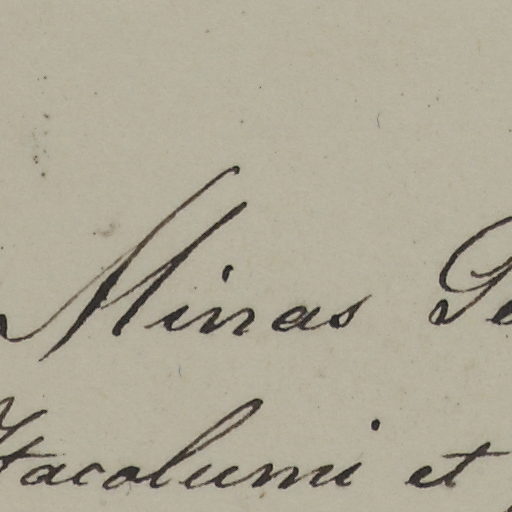 Minas Ge
Itacolumi et